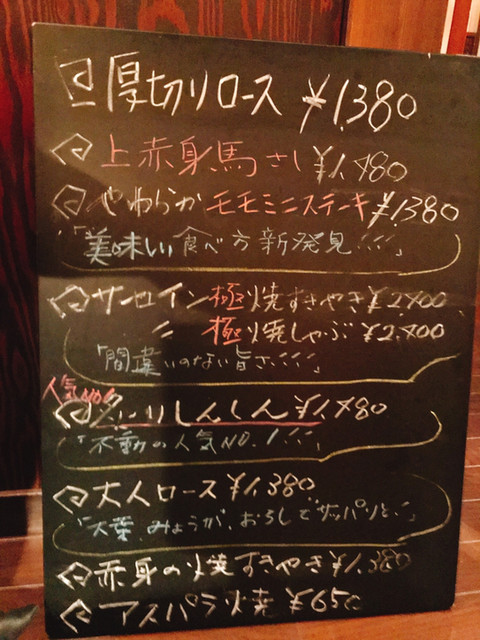 厚切りロース ¥1,380
上赤身馬さし ¥1,480
やわらかモモミニステーキ ¥1,380
「美味しい食べ方新発見!!!」
サーロイン極焼すきやき ¥2,400
〃 極焼しゃぶ ¥2,400
「間違いのない旨さ!!!!」
人気NO.1
しんしん ¥1,480
「不動の人気NO.1!!!」
大人ロース ¥1,380
「大葉、みょうが、おろしでサッパリと!」
赤身の焼すきやき ¥1,380
アスパラ焼 ¥650